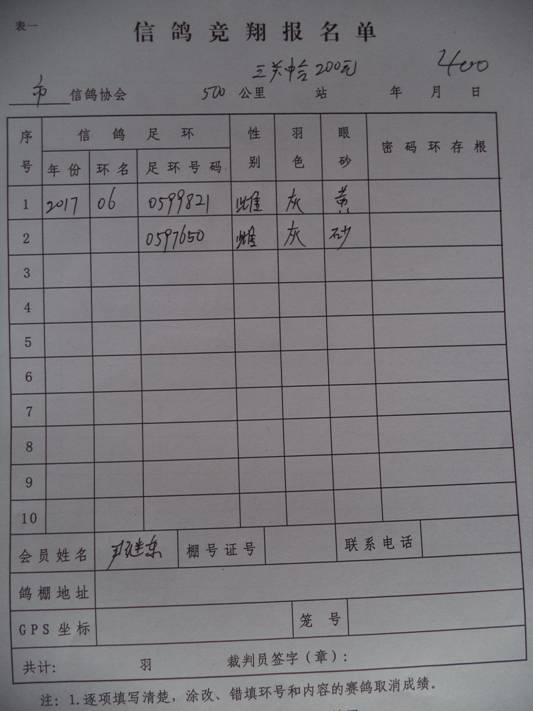 表一
信鸽竞翔报名单
三关中合200元 400
市 信鸽协会 500 公里 站 年 月 日
序号 信鸽足环 性别 羽色 眼砂 密码环存根
年份 环名 足环号码
1 2017 06 0599821 雌 灰 黄
2 0597650 雌 灰 砂
3
4
5
6
7
8
9
10
会员姓名 棚号证号 联系电话
鸽棚地址
GPS坐标 笼号
共计: 羽 裁判员签字(章):
注:1.逐项填写清楚,涂改、错填环号和内容的赛鸽取消成绩。